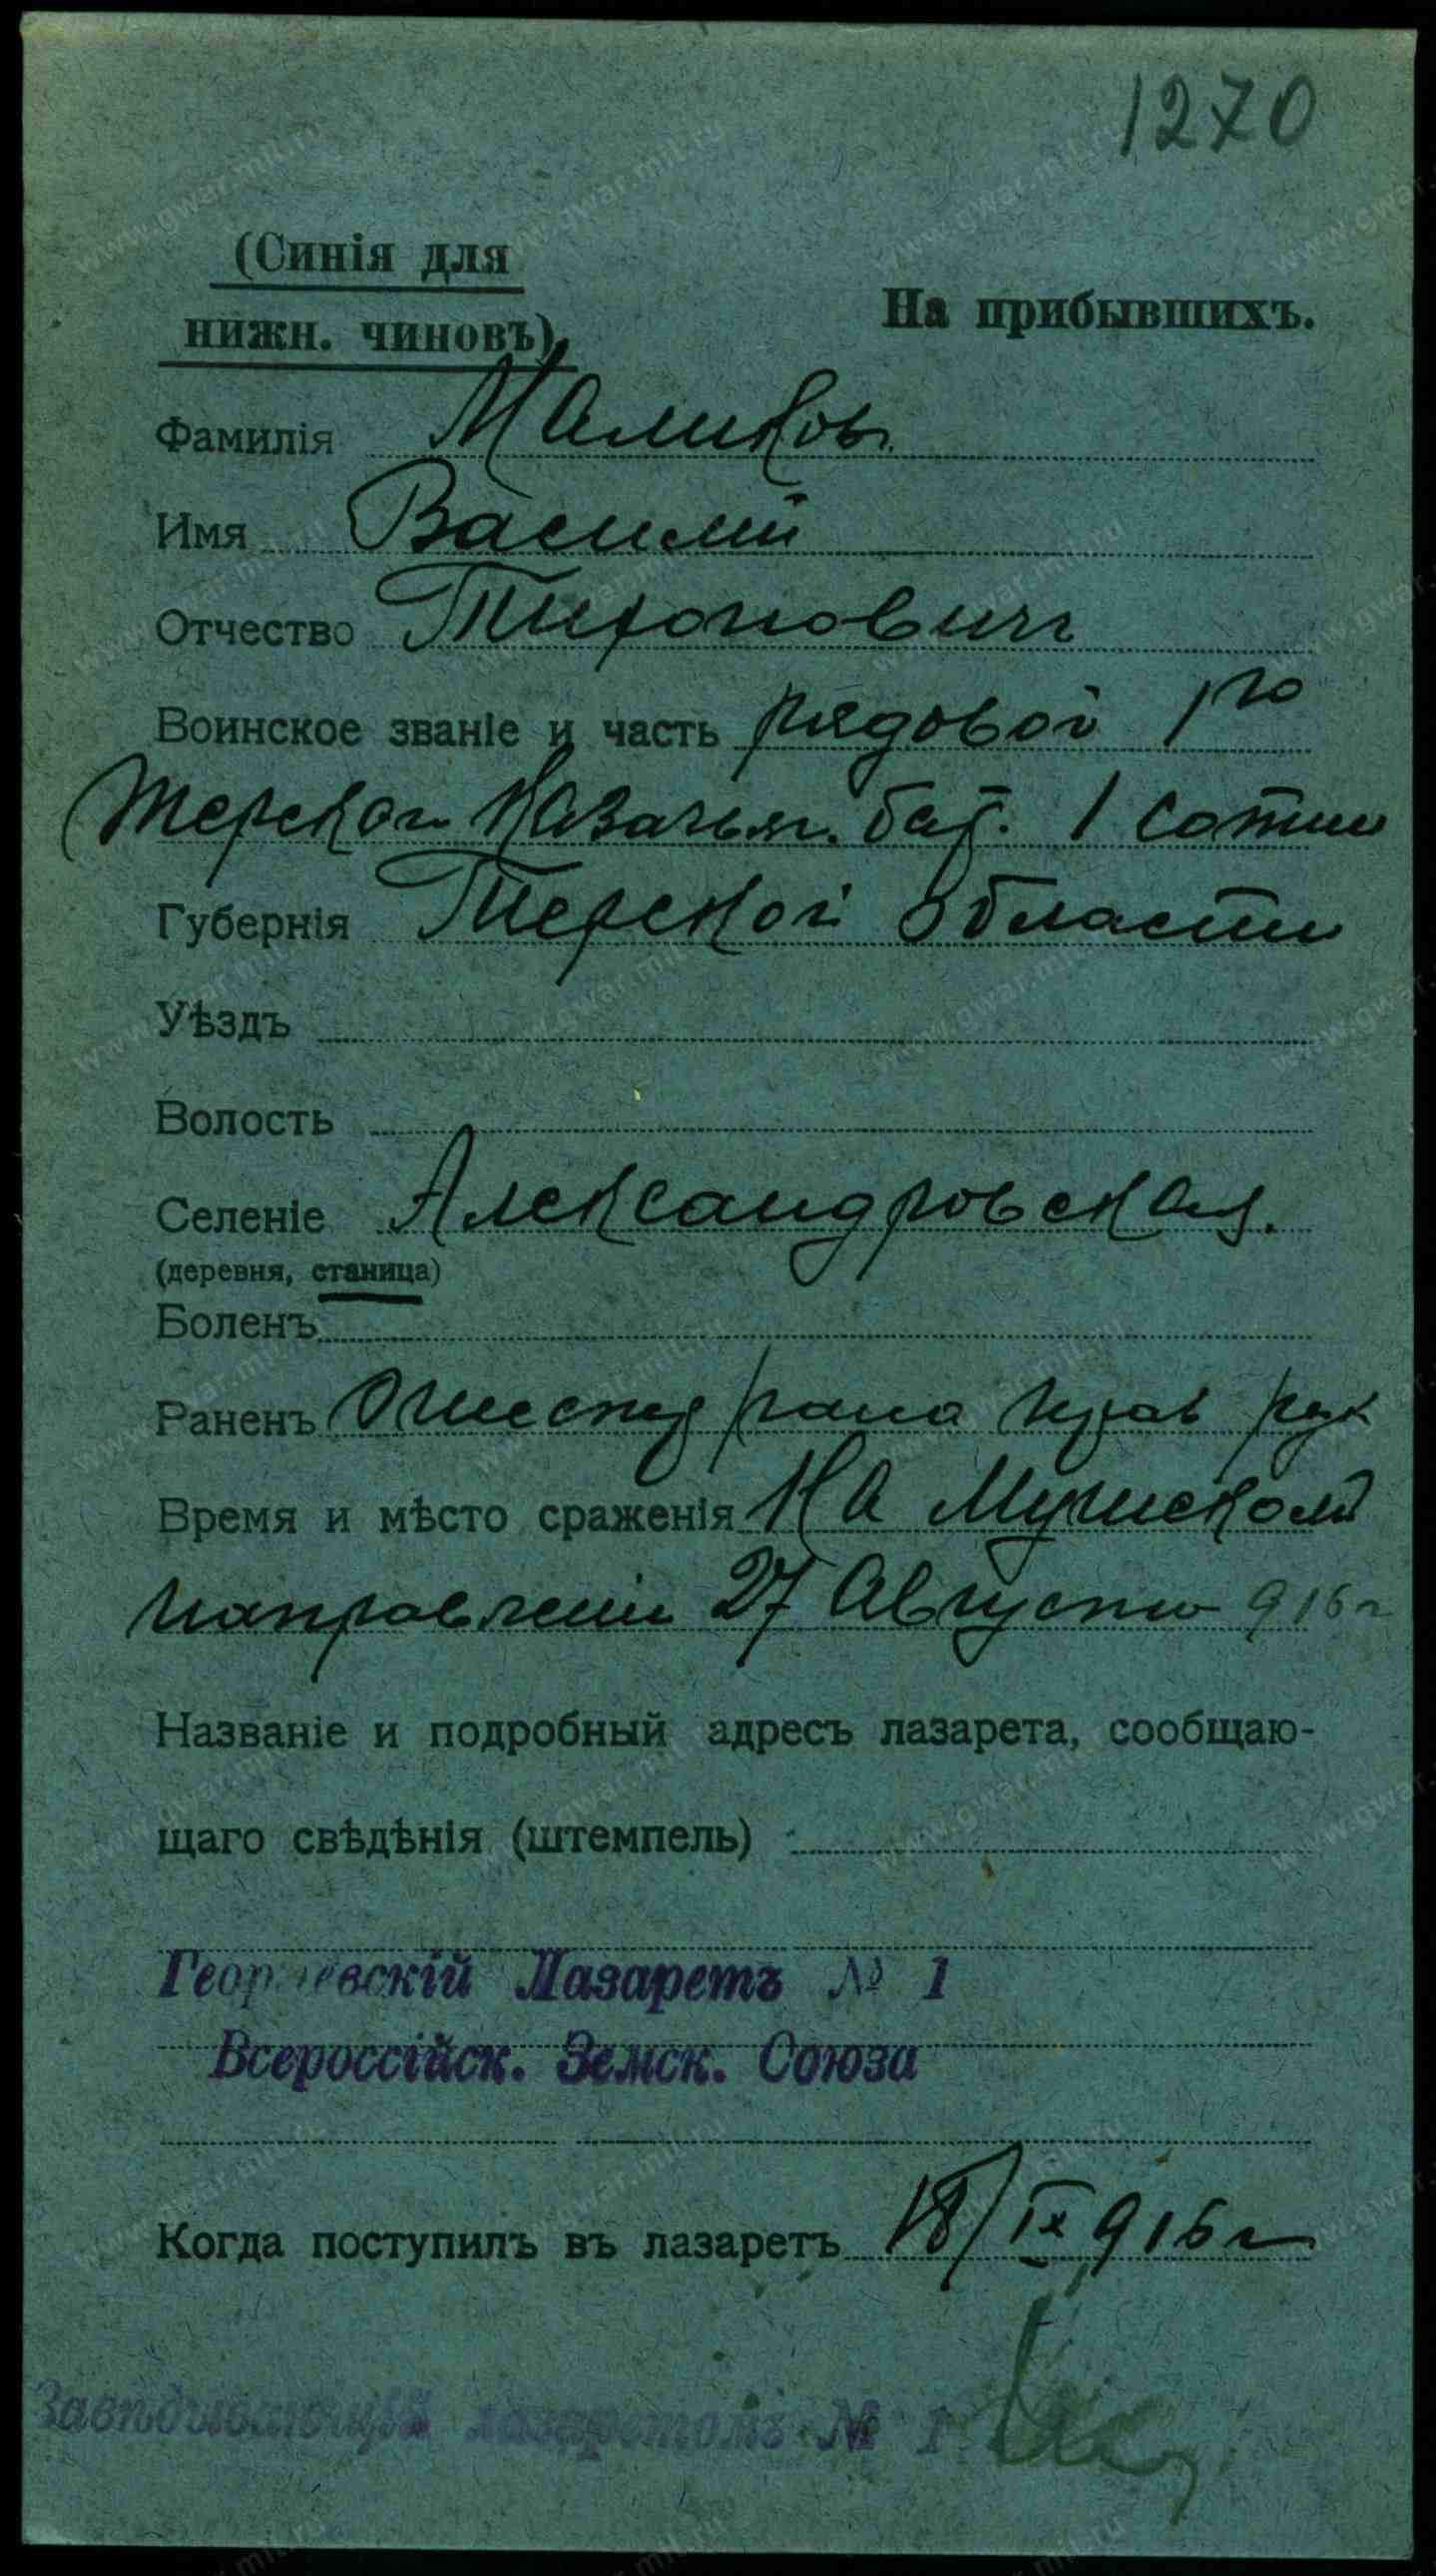 1270
(Синія для
нижн. чиновъ)
На прибывшихъ.
Фамилія Маликовъ
Имя Василій
Отчество Тихоновичъ
Воинское званіе и часть рядовой 1го
Терског. Казачьяг. бат. 1 сотни
Губернія Терской области
Уѣздъ
Волость
Селеніе Александровская.
(деревня, станица)
Боленъ
Раненъ Огнестр рана прав рук
Время и мѣсто сраженія На Мушском
направленіи 27 Августа 916 г
Названіе и подробный адресъ лазарета, сообщаю-
щаго свѣдѣнія (штемпель)
Георгіевскій Лазаретъ № 1
Всероссійск. Земск. Союза
Когда поступилъ въ лазаретъ 18/IX 916 г
Завѣдывающій лазаретомъ № 1